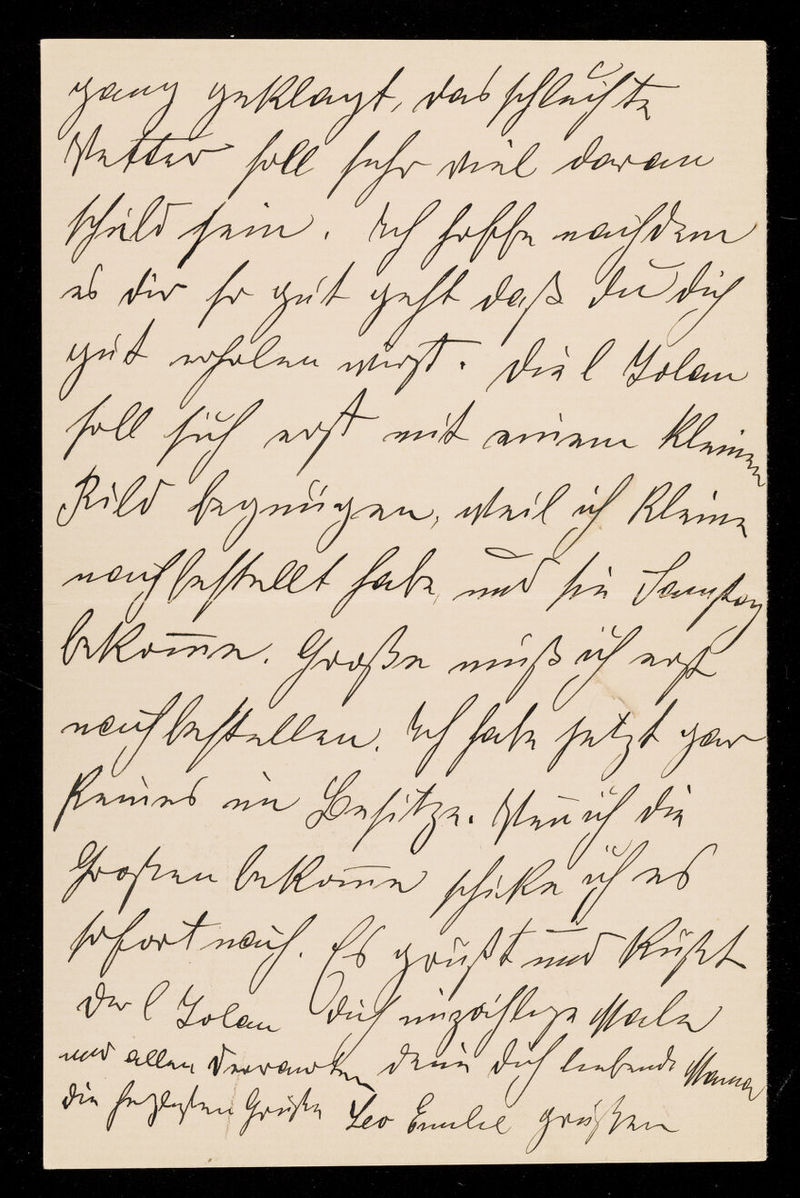 ganz geklagt, das schlechte
Wetter soll sehr viel daran
schuld sein. Ich hoffe nachdem
es dir so gut geht daß du dich
gut erholen wirst. Die l Jolan
soll sich erst mit einem kleinen
Bild begnügen, weil ich kleine
nachbestellt habe, und sie Samstag
bekom̅e. Große muß ich erst
nachbestellen. Ich habe jetzt gar
keines im Besitze. Wen̅ ich die
Großen bekom̅e schike ich es
sofort nach. Es grüßt und küßt
der l Jolan dich unzählige Male
und allen Verwanten deine dich liebende Mama
die herzlichsten Grüße Leo Emilie grüßen